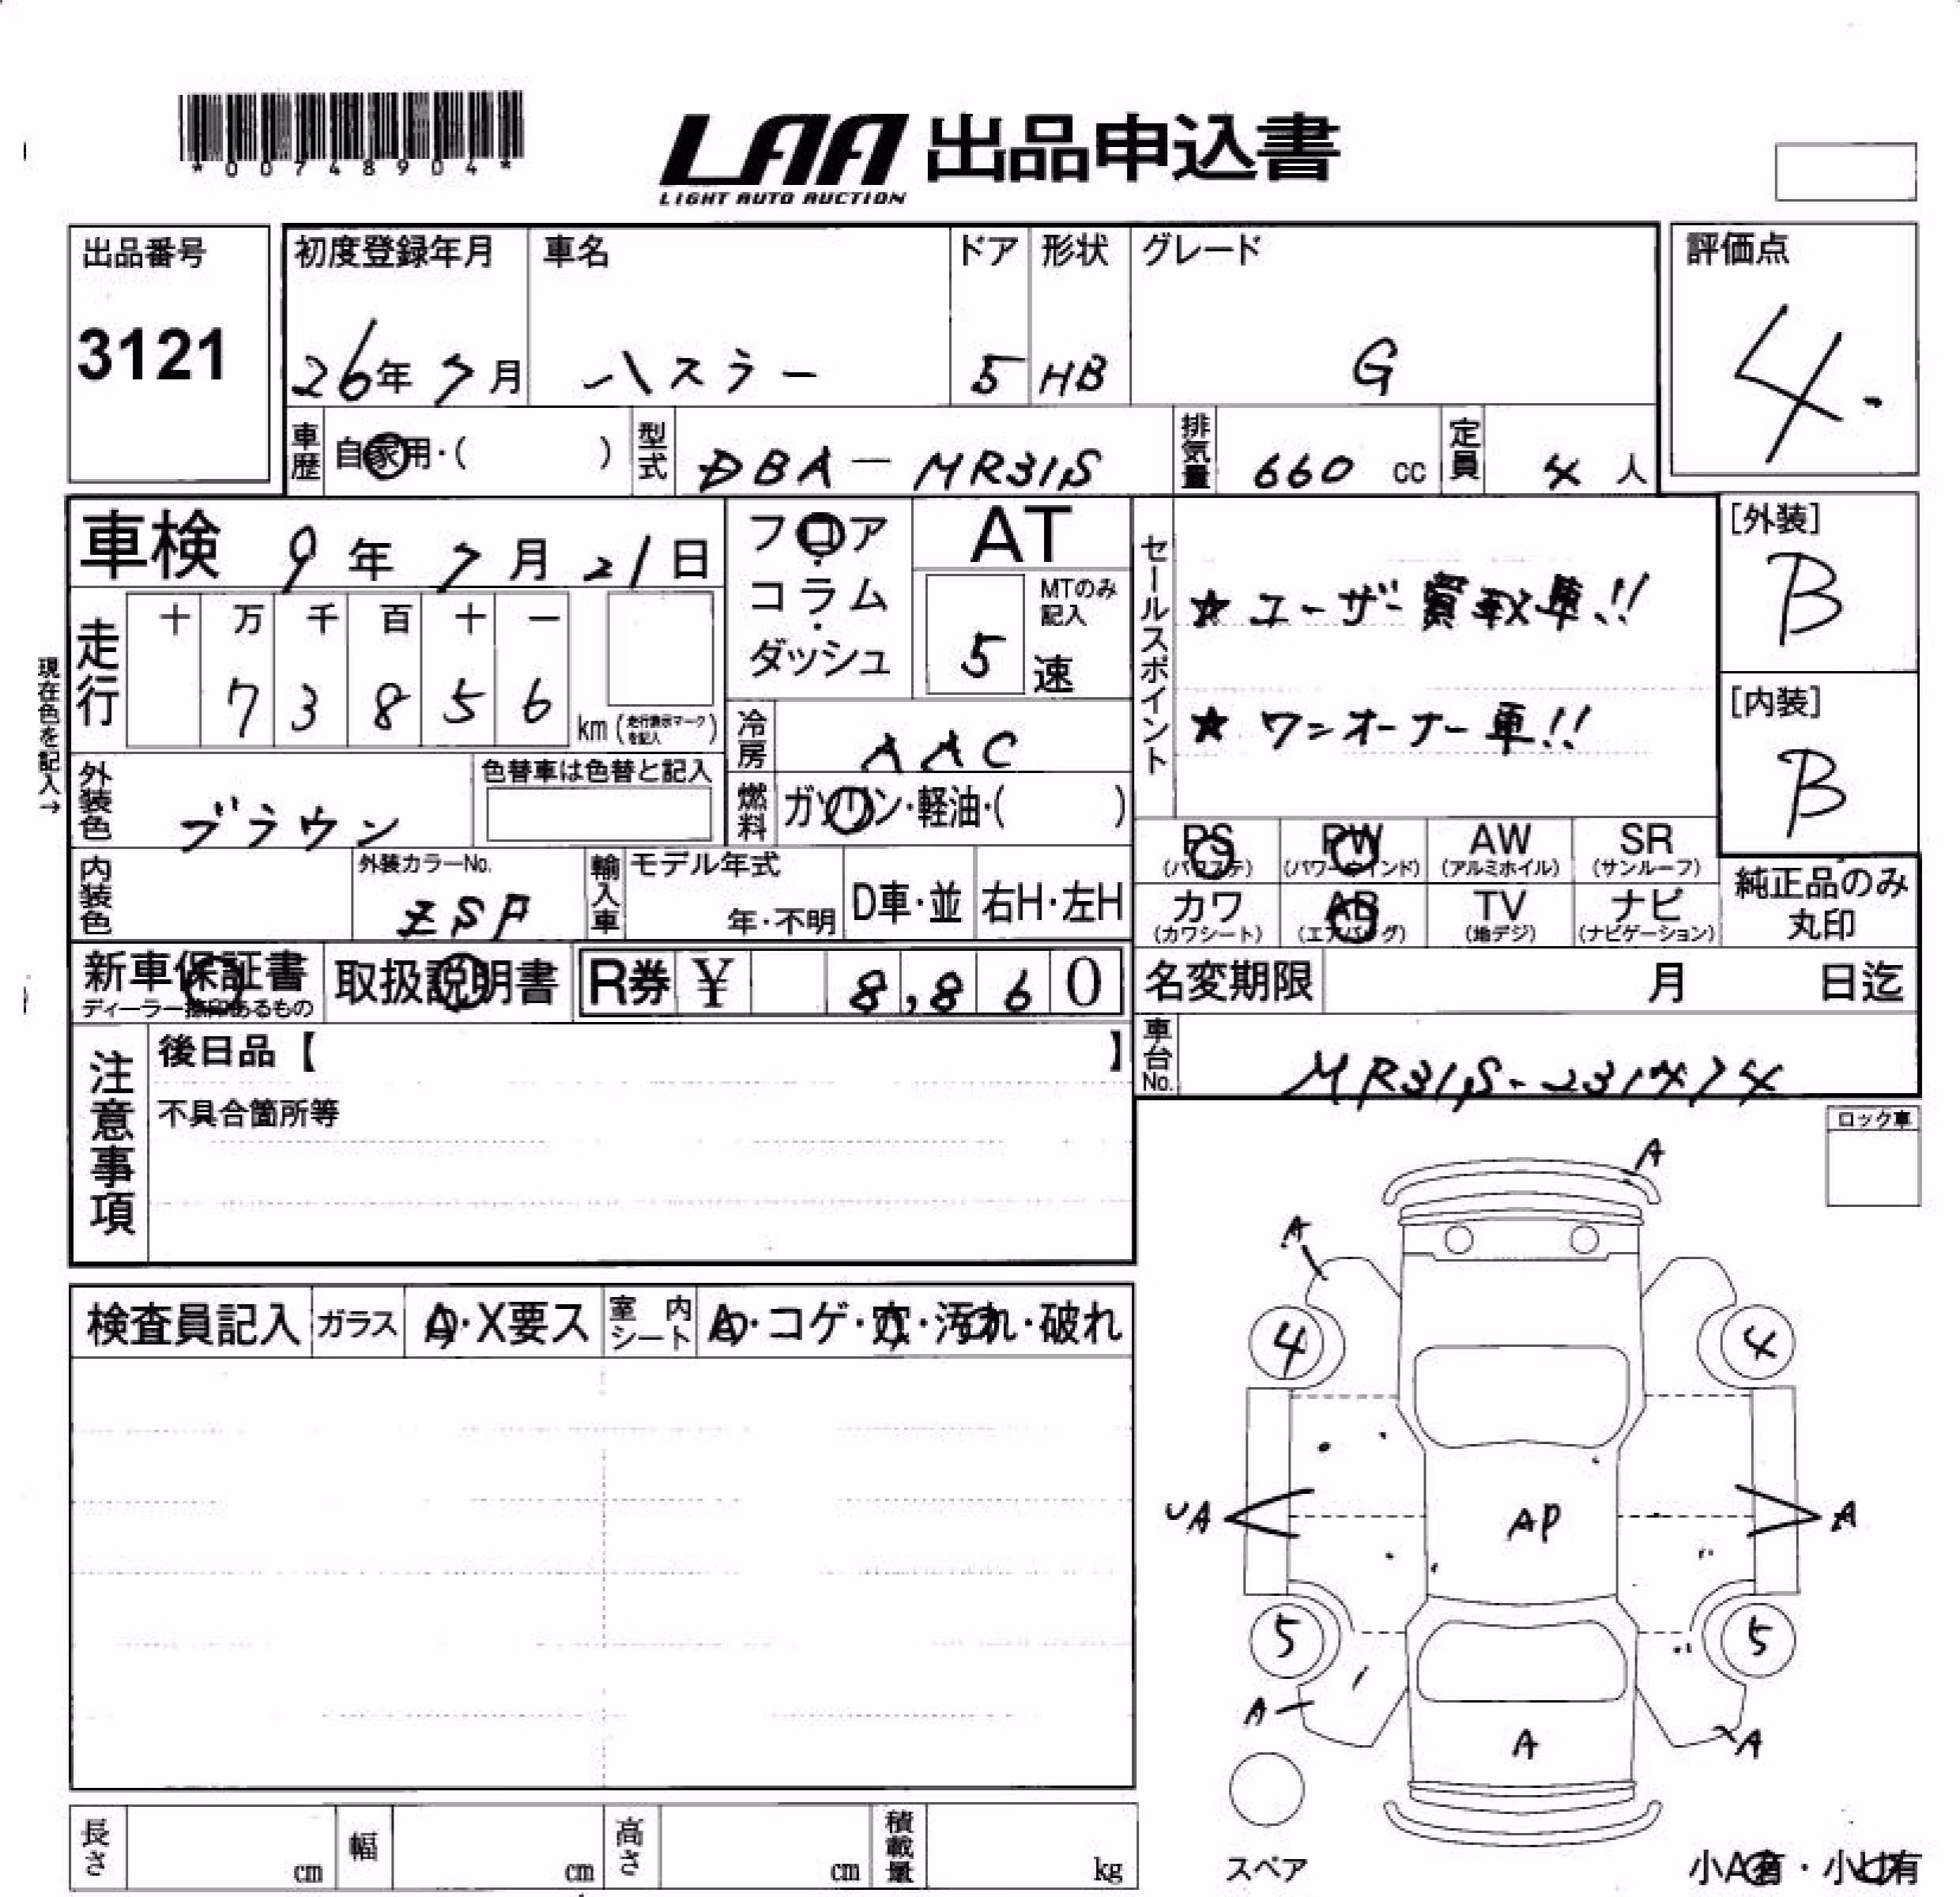 *00748904*
LAA 出品申込書
LIGHT AUTO AUCTION
出品番号
3121
初度登録年月
26年 7月
車名
ハスラー
ドア
5
形状
HB
グレード
G
評価点
4.
車歴 自家用・( )
型式 DBA-MR31S
排気量 660 cc
定員 4 人
車検 9年 7月 21日
フロア・コラム・ダッシュ
AT
MTのみ記入
5 速
セールスポイント
★ ユーザー買取車!!
★ ワンオーナー車!!
[外装]
B
[内装]
B
現在色を記入→
走行
十 万 千 百 十 一
7 3 8 5 6
km (走行表示マークを記入)
冷房 AAC
外装色 ブラウン
色替車は色替と記入
燃料 ガソリン・軽油・( )
内装色
外装カラーNo.
ZSP
輸入車 モデル年式
年・不明
D車・並
右H・左H
PS (パワステ)
PW (パワーウインド)
AW (アルミホイル)
SR (サンルーフ)
カワ (カワシート)
AB (エアバッグ)
TV (地デジ)
ナビ (ナビゲーション)
純正品のみ丸印
新車保証書
ディーラー捺印あるもの
取扱説明書
R券 ¥ 8,860
名変期限 月 日迄
注意事項
後日品【 】
不具合箇所等
車台No.
ロック車
検査員記入
ガラス A・X要ス
室内シート A・コゲ・穴・汚れ・破れ
A
A
4
4
UA
AP
A
5
5
A
A
A
スペア
小A有・小U有
長さ cm
幅 cm
高さ cm
積載量 kg